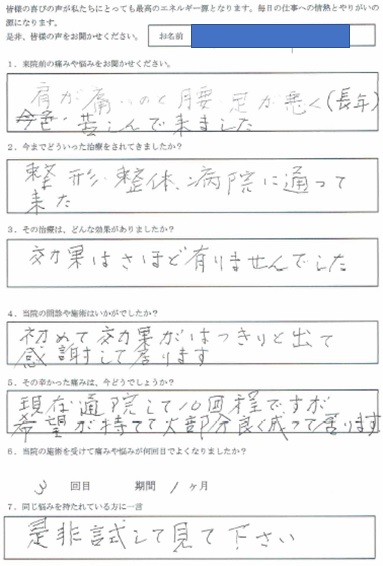 皆様の喜びの声が私たちにとっても最高のエネルギー源となります。毎日の仕事への情熱とやりがいの
源になります。
是非、皆様の声をお聞かせください。 お名前
1. 来院前の痛みや悩みをお聞かせください。
肩が痛いのと腰・足が悪く(長年)
今邑 苦しんで来ました
2. 今までどういった治療をされてきましたか?
整形、整体、病院に通って
来た
3. その治療は、どんな効果がありましたか?
効果はさほど有りませんでした
4. 当院の問診や施術はいかがでしたか?
初めて効果がはっきりと出て
感謝して居ります
5. その辛かった痛みは、今どうでしょうか?
現在通院して10回程ですが
希望が持てて大部分良く成って居ります
6. 当院の施術を受けて痛みや悩みが何回目でよくなりましたか?
3 回目 期間 1 ヶ月
7. 同じ悩みを持たれている方に一言
是非試して見て下さい